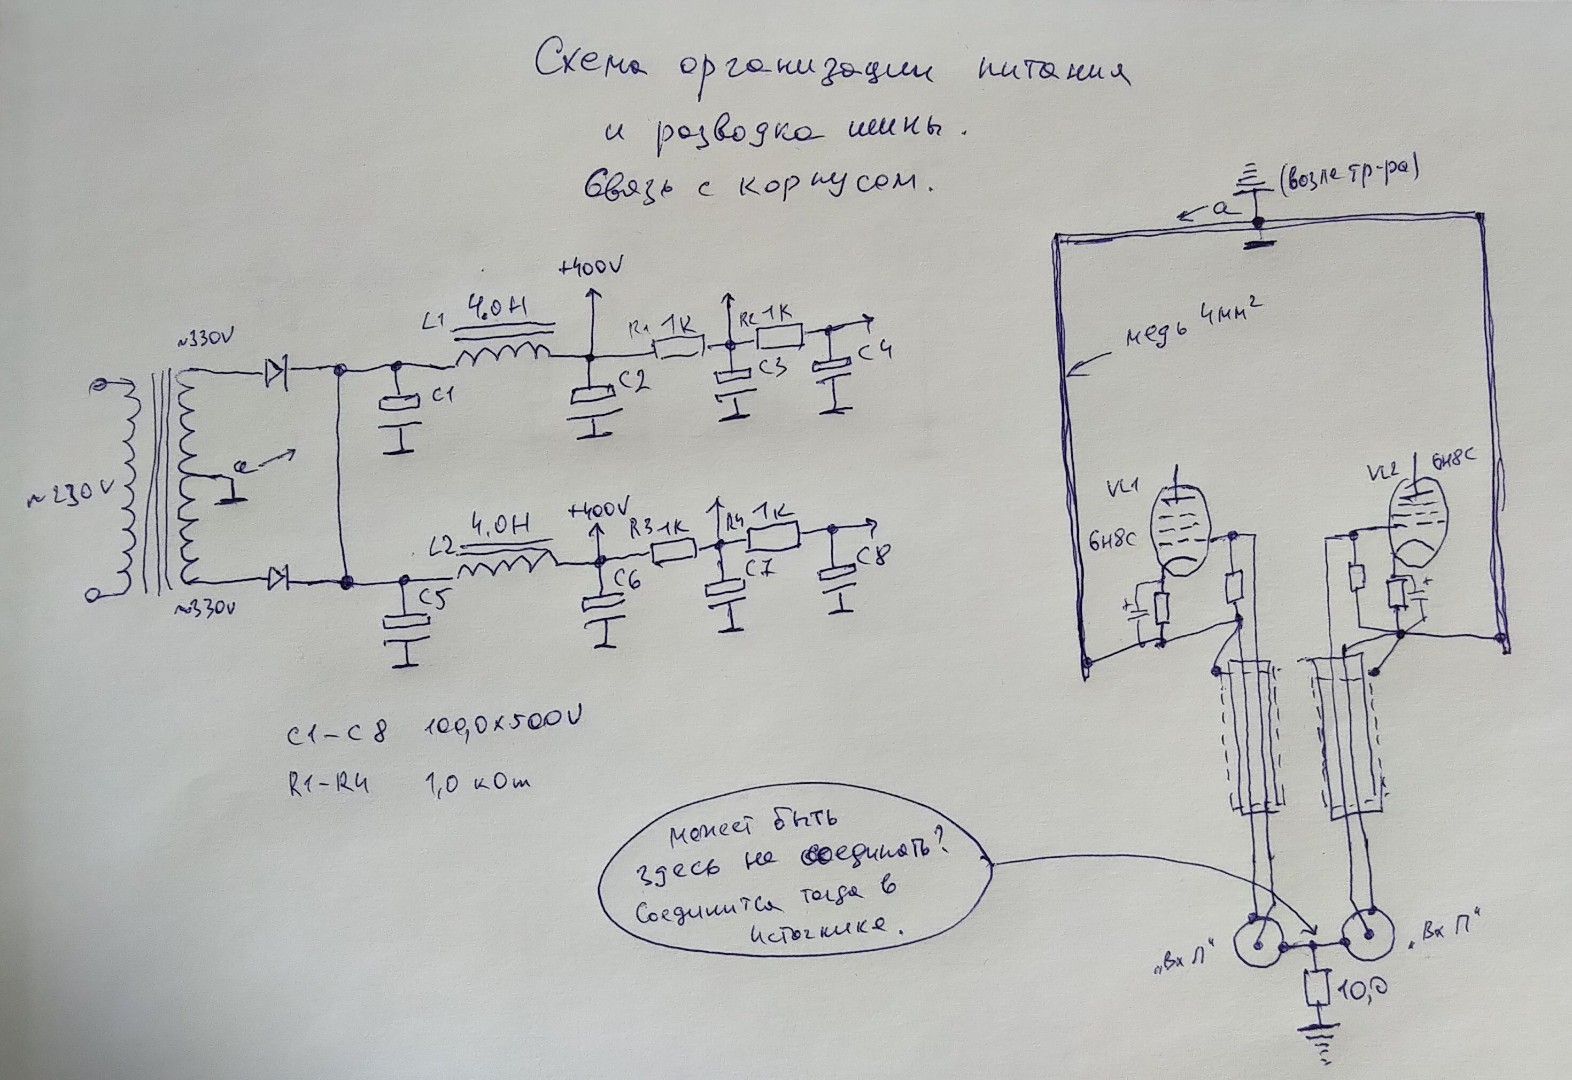 Схема организации питания
и разводка шины.
Связь с корпусом.
(возле тр-ра)
← a
медь 4мм²
~330V
~230V
~330V
a
L1 4.0H
+400V
R1 1K
R2 1K
C1
C2
C3
C4
L2 4.0H
+400V
R3 1K
R4 1K
C5
C6
C7
C8
VL1
6Н8С
VL2 6Н8С
+
+
C1-C8 100,0x500V
R1-R4 1,0 кОm
может быть
здесь не соединять?
Соединится тогда в
источнике.
„Вх Л“
„Вх П“
10,0